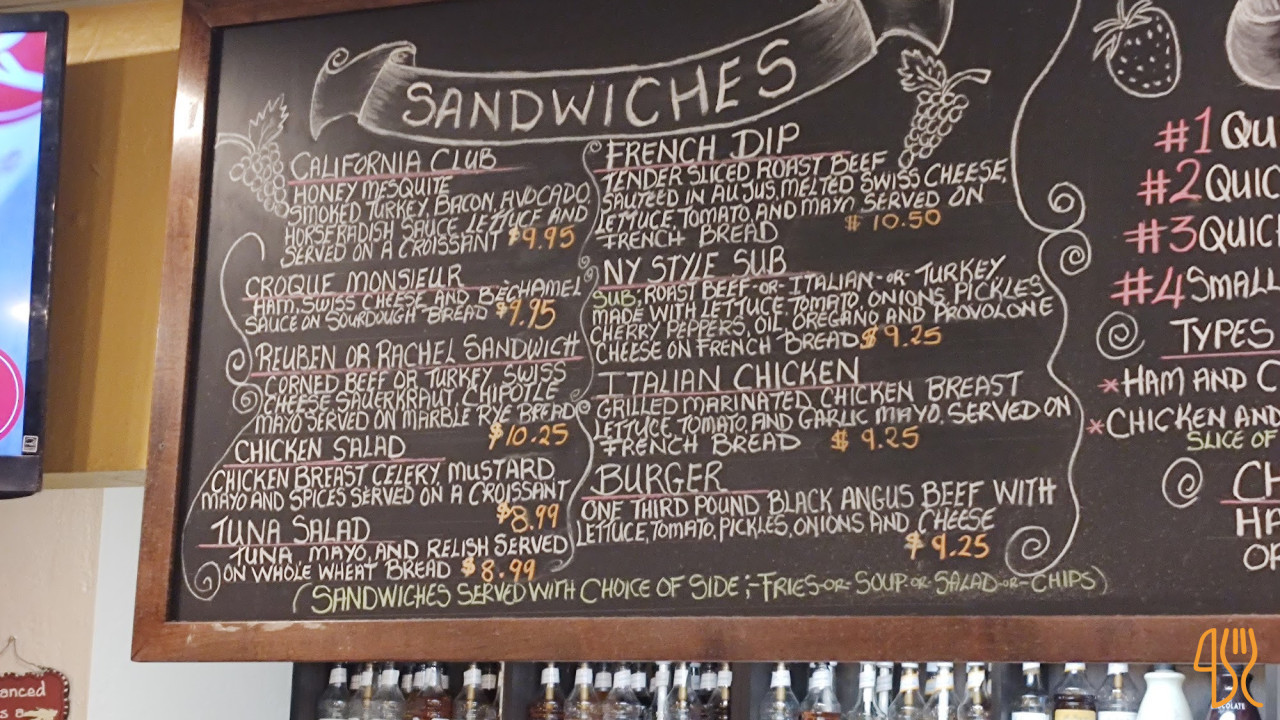 SANDWICHES
CALIFORNIA CLUB
HONEY MESQUITE
SMOKED TURKEY, BACON, AVOCADO,
HORSERADISH SAUCE, LETTUCE AND
SERVED ON A CROISSANT $9.95
CROQUE MONSIEUR
HAM, SWISS CHEESE AND BÉCHAMEL
SAUCE ON SOURDOUGH BREAD $9.95
REUBEN OR RACHEL SANDWICH
CORNED BEEF OR TURKEY, SWISS
CHEESE SAUERKRAUT, CHIPOTLE
MAYO SERVED ON MARBLE RYE BREAD
$10.25
CHICKEN SALAD
CHICKEN BREAST CELERY, MUSTARD,
MAYO AND SPICES SERVED ON A CROISSANT
$8.99
TUNA SALAD
TUNA, MAYO, AND RELISH SERVED
ON WHOLE WHEAT BREAD $8.99
FRENCH DIP
TENDER SLICED ROAST BEEF
SAUTEED IN AU JUS, MELTED SWISS CHEESE,
LETTUCE, TOMATO, AND MAYO SERVED ON
FRENCH BREAD $10.50
NY STYLE SUB
SUB: ROAST BEEF-OR-ITALIAN-OR-TURKEY
MADE WITH LETTUCE, TOMATO, ONIONS, PICKLES
CHERRY PEPPERS, OIL, OREGANO AND PROVOLONE
CHEESE ON FRENCH BREAD $9.25
ITALIAN CHICKEN
GRILLED MARINATED CHICKEN BREAST
LETTUCE, TOMATO, AND GARLIC MAYO. SERVED ON
FRENCH BREAD $9.25
BURGER
ONE THIRD POUND BLACK ANGUS BEEF WITH
LETTUCE, TOMATO, PICKLES, ONIONS AND CHEESE
$9.25
(SANDWICHES SERVED WITH CHOICE OF SIDE;-FRIES-OR-SOUP-OR-SALAD-OR-CHIPS)
#1 QU
#2 QUIC
#3 QUICH
#4 SMALL
TYPES
*HAM AND C
*CHICKEN AND
SLICE OF
CH
HA
OF
anced